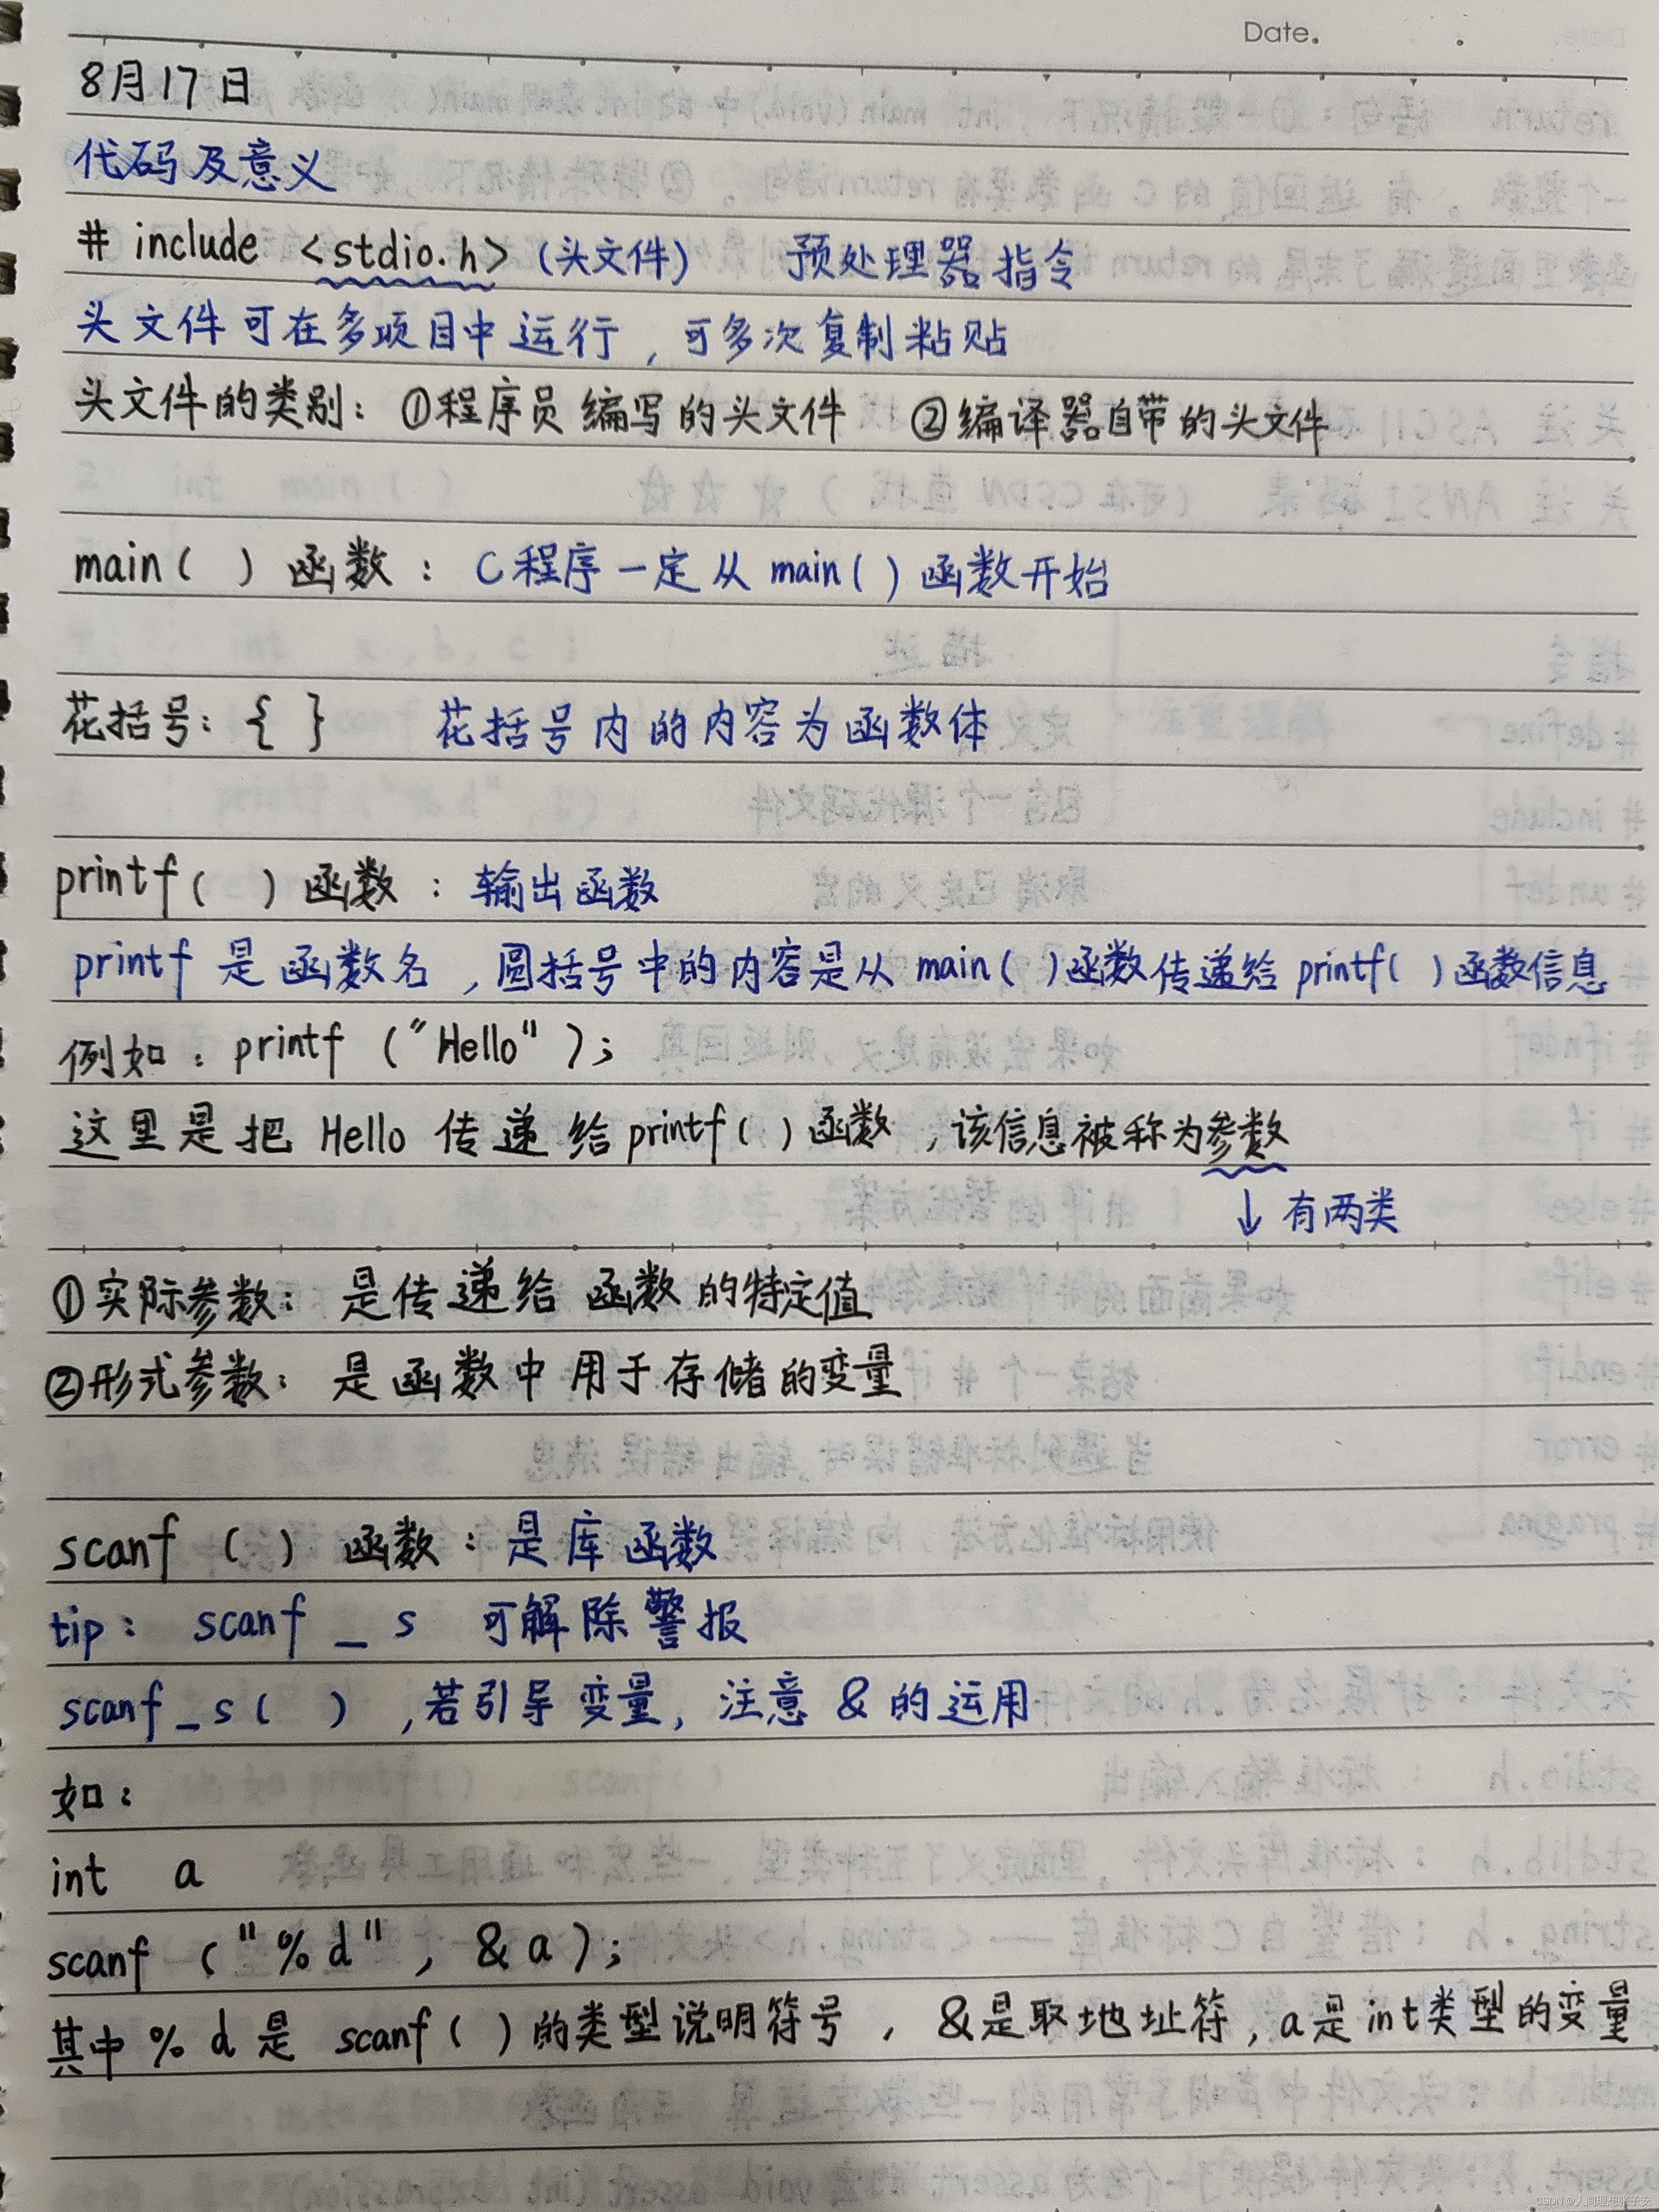 Date.
8月17日
代码及意义
# include <stdio.h> (头文件) 预处理器指令
头文件可在多项目中运行,可多次复制粘贴
头文件的类别: ①程序员编写的头文件 ②编译器自带的头文件
main( ) 函数: C程序一定从 main( ) 函数开始
花括号: { } 花括号内的内容为函数体
printf( ) 函数: 输出函数
printf 是函数名,圆括号中的内容是从 main( )函数传递给 printf( )函数信息
例如: printf ("Hello");
这里是把 Hello 传递给 printf( )函数,该信息被称为参数
↓ 有两类
①实际参数: 是传递给函数的特定值
②形式参数: 是函数中用于存储的变量
scanf ( ) 函数: 是库函数
tip: scanf _ s 可解除警报
scanf_s( ) ,若引导变量, 注意 & 的运用
如:
int a
scanf ("%d", &a);
其中 %d 是 scanf( )的类型说明符号, &是取地址符, a是int类型的变量
CSDN @人间理想张子安